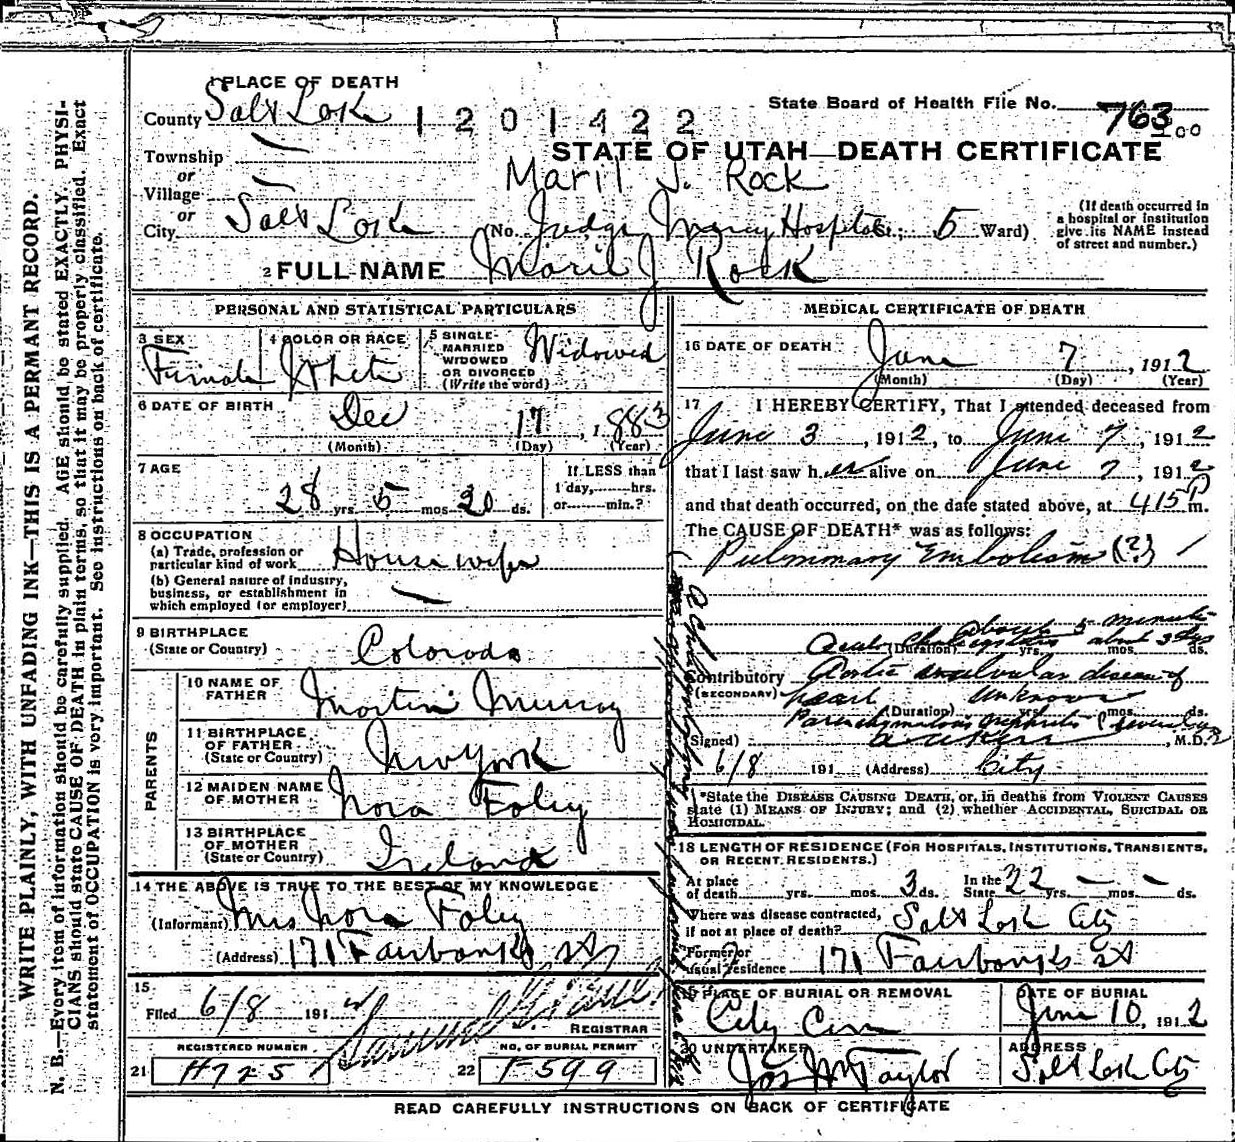 WRITE PLAINLY, WITH UNFADING INK—THIS IS A PERMANT RECORD.
N. B.—Every item of information should be carefully supplied. AGE should be stated EXACTLY. PHYSI-
CIANS should state CAUSE OF DEATH in plain terms, so that it may be properly classified. Exact
statement of OCCUPATION is very important. See instructions on back of certificate.
1 PLACE OF DEATH
County Salt Lake
1201422
State Board of Health File No. 763
00
Township
or
Village
or
City Salt Lake
STATE OF UTAH—DEATH CERTIFICATE
Maril J. Rock
(No. Judge Mercy Hospital St.; 5 Ward)
(If death occurred in
a hospital or institution
give its NAME instead
of street and number.)
2 FULL NAME Marie J Rock
PERSONAL AND STATISTICAL PARTICULARS
3 SEX Female
4 COLOR OR RACE White
5 SINGLE
MARRIED
WIDOWED
OR DIVORCED
(Write the word)
Widowed
6 DATE OF BIRTH
Dec 17, 1883
(Month) (Day) (Year)
7 AGE
28 yrs. 5 mos. 20 ds.
If LESS than
1 day, hrs.
or min.?
8 OCCUPATION
(a) Trade, profession or
particular kind of work Housewife
(b) General nature of industry,
business, or establishment in
which employed (or employer)
9 BIRTHPLACE
(State or Country) Colorado
PARENTS
10 NAME OF
FATHER Martin Murray
11 BIRTHPLACE
OF FATHER
(State or Country) New York
12 MAIDEN NAME
OF MOTHER Nora Foley
13 BIRTHPLACE
OF MOTHER
(State or Country) Ireland
14 THE ABOVE IS TRUE TO THE BEST OF MY KNOWLEDGE
(Informant) Mrs Nora Foley
(Address) 171 Fairbanks st
15
Filed 6/8 191
REGISTRAR
REGISTERED NUMBER
21 H725
NO. OF BURIAL PERMIT
22 F599
MEDICAL CERTIFICATE OF DEATH
16 DATE OF DEATH
June 7, 1912
(Month) (Day) (Year)
17 I HEREBY CERTIFY, That I attended deceased from
June 3, 1912, to June 7, 1912
that I last saw her alive on June 7, 1912
and that death occurred, on the date stated above, at 415 P m.
The CAUSE OF DEATH* was as follows:
Pulmonary Embolism (?)
about 5 minutes
(Duration) yrs. mos. ds.
about 3 dys
Contributory Aortic valvular disease of
(SECONDARY) heart unknown
(Duration) yrs. mos. ds.
Parenchymatous nephritis (several yrs
(Signed) , M.D.
6/8 191 (Address) City
*State the DISEASE CAUSING DEATH, or, in deaths from VIOLENT CAUSES
state (1) MEANS OF INJURY; and (2) whether ACCIDENTAL, SUICIDAL OR
HOMICIDAL.
18 LENGTH OF RESIDENCE (FOR HOSPITALS, INSTITUTIONS, TRANSIENTS,
OR RECENT RESIDENTS.)
At place
of death yrs. mos. 3 ds.
In the
State 22 yrs. mos. ds.
Where was disease contracted,
if not at place of death? Salt Lake City
Former or
usual residence 171 Fairbanks st
19 PLACE OF BURIAL OR REMOVAL
City Cem
DATE OF BURIAL
June 10, 1912
20 UNDERTAKER
Jos Wm Taylor
ADDRESS
Salt Lake City
READ CAREFULLY INSTRUCTIONS ON BACK OF CERTIFICATE